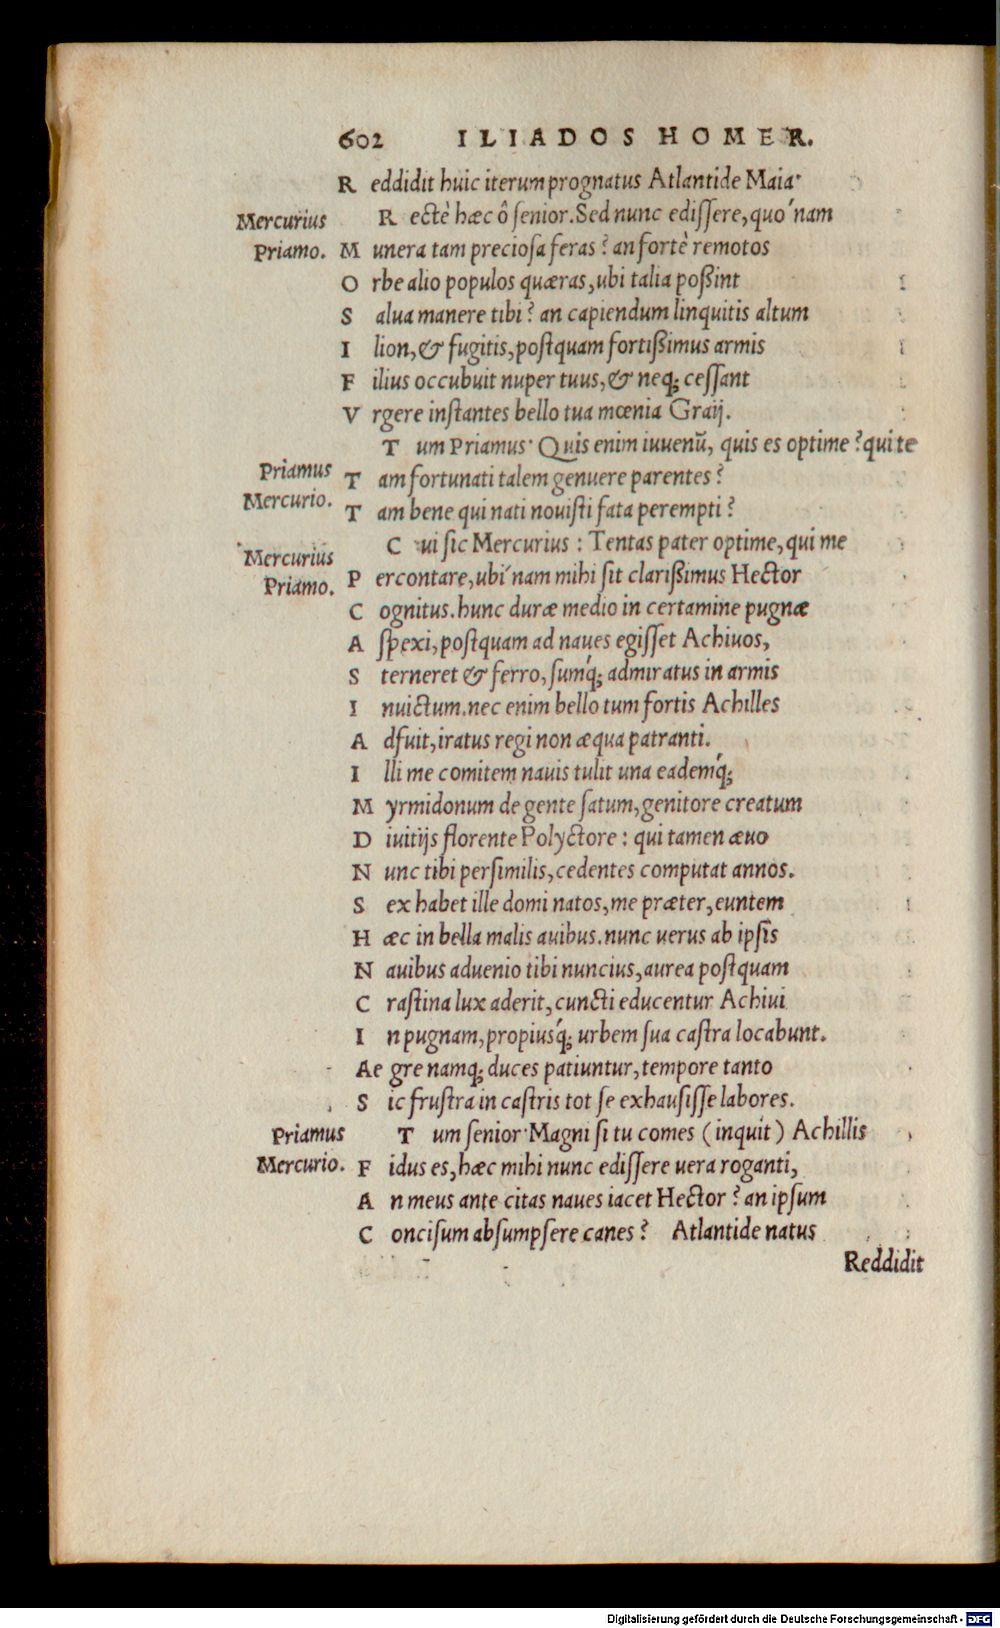 602 ILIADOS HOMER.
Reddidit huic iterum prognatus Atlantide Maia·
Mercurius
Rectè hæc ô ſenior. Sed nunc ediſſere, quo´nam
Priamo.
Munera tam precioſa feras? an fortè remotos
Orbe alio populos quæras, ubi talia poßint
Salua manere tibi? an capiendum linquitis altum
Ilion, & fugitis, poſtquam fortißimus armis
Filius occubuit nuper tuus, & neq; ceſſant
Vrgere inſtantes bello tua mœnia Graij.
Tum Priamus· Quis enim iuuenũ, quis es optime? qui te
Priamus
Tam fortunati talem genuere parentes?
Mercurio.
Tam bene qui nati nouiſti fata perempti?
Cui ſic Mercurius: Tentas pater optime, qui me
Mercurius
Percontare, ubi´nam mihi ſit clarißimus Hector
Priamo.
Cognitus. hunc duræ medio in certamine pugnæ
Aſpexi, poſtquam ad naues egiſſet Achiuos,
Sterneret & ferro, ſumq́; admiratus in armis
Inuictum. nec enim bello tum fortis Achilles
Adfuit, iratus regi non æqua patranti.
Illi me comitem nauis tulit una eademq́;
Myrmidonum de gente ſatum, genitore creatum
Diuitijs florente Polyctore: qui tamen æuo
Nunc tibi perſimilis, cedentes computat annos.
Sex habet ille domi natos, me præter, euntem
Hæc in bella malis auibus. nunc uerus ab ipſis
Nauibus aduenio tibi nuncius, aurea poſtquam
Craſtina lux aderit, cuncti educentur Achiui
In pugnam, propiusq́; urbem ſua caſtra locabunt.
Aegre namq; duces patiuntur, tempore tanto
Sic fruſtra in caſtris tot ſe exhauſiſſe labores.
Priamus
Tum ſenior· Magni ſi tu comes (inquit) Achillis
Mercurio.
Fidus es, hæc mihi nunc ediſſere uera roganti,
An meus ante citas naues iacet Hector? an ipſum
Conciſum abſumpſere canes? Atlantide natus
Reddidit
Digitalisierung gefördert durch die Deutsche Forschungsgemeinschaft - DFG